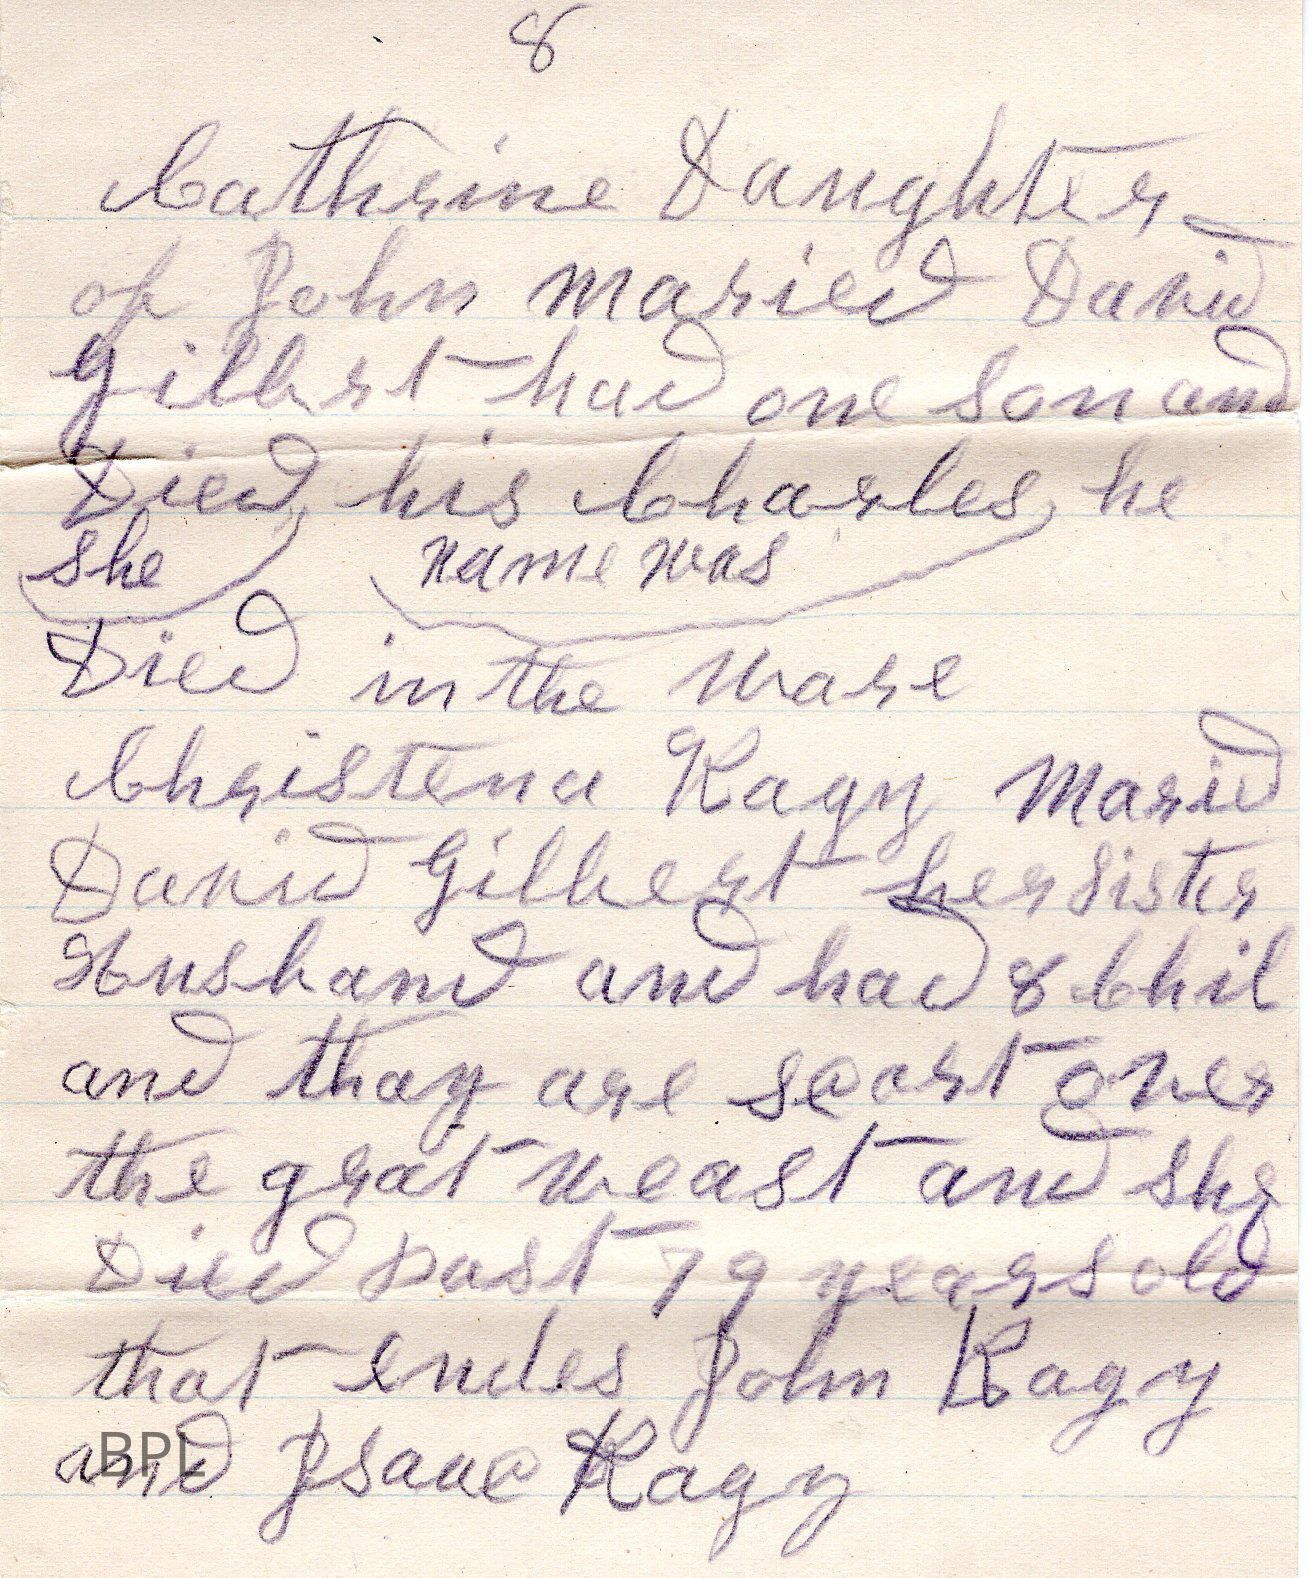 8
Cathrine Daughter
of John maried David
Gilbert had one Son and
Died his Charles he
she name was
Died in the ware
Christena Kagy Maried
David Gilbert her Sister
Husband and had 8 Chil
and thay are scart over
the grat weast and She
Died Past 79 years old
that endes John Kagy
and Isaac Kagy
BPL